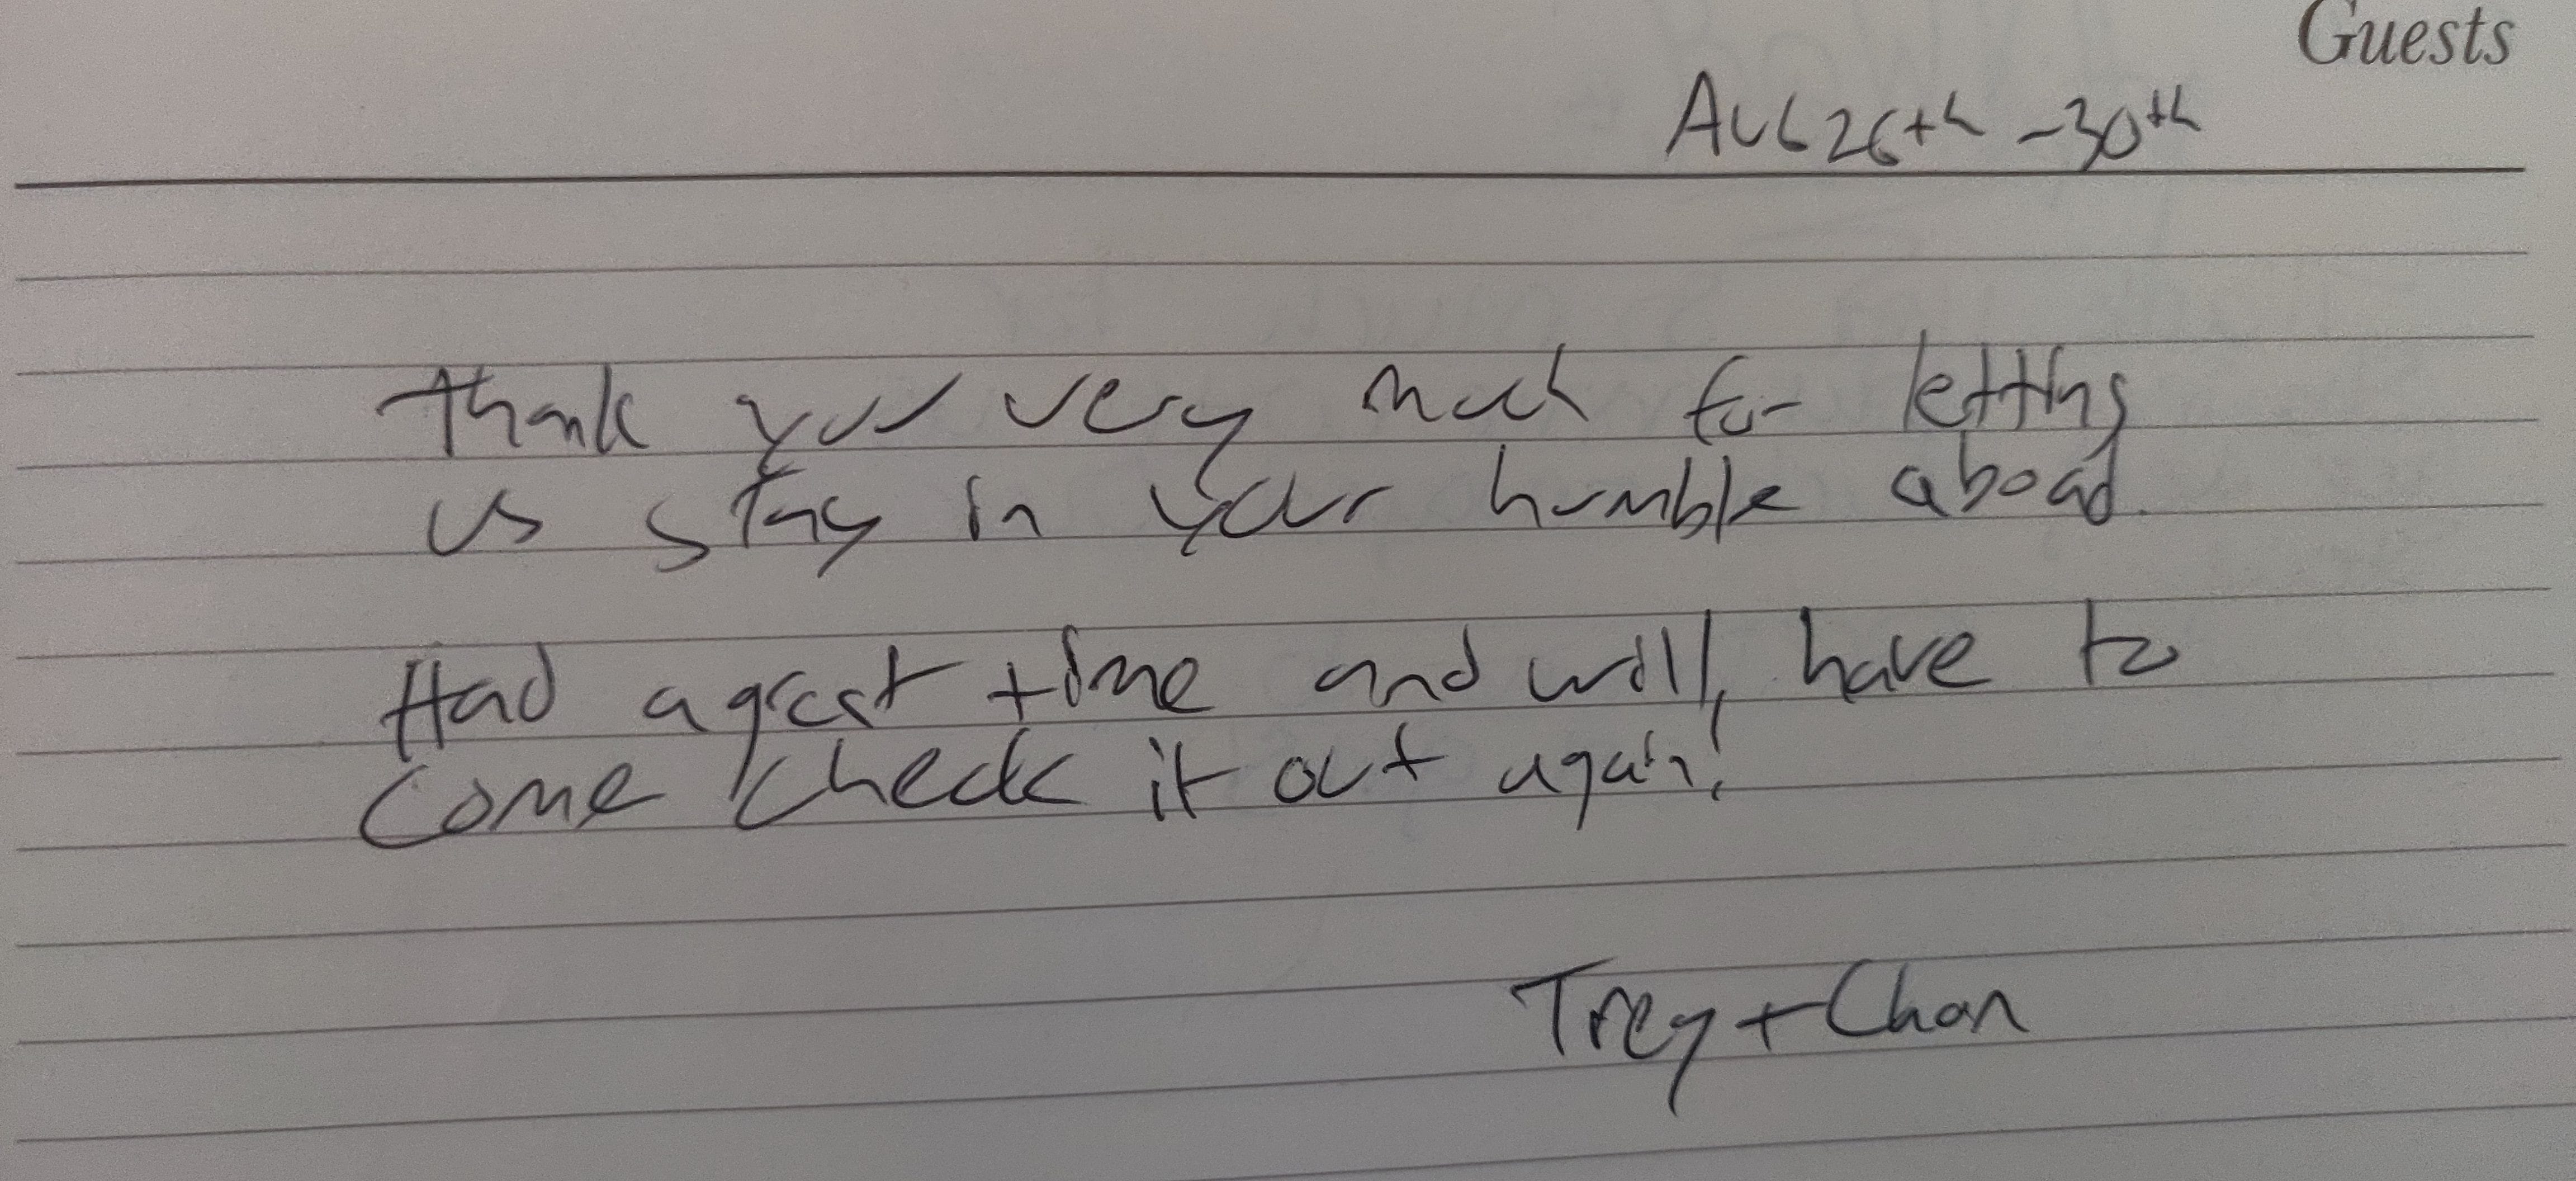 Guests
AUG 26th - 30th
Thank you very much for letting
us stay in your humble aboad.
Had a great time and will, have to
come check it out again!
Trey + Chan